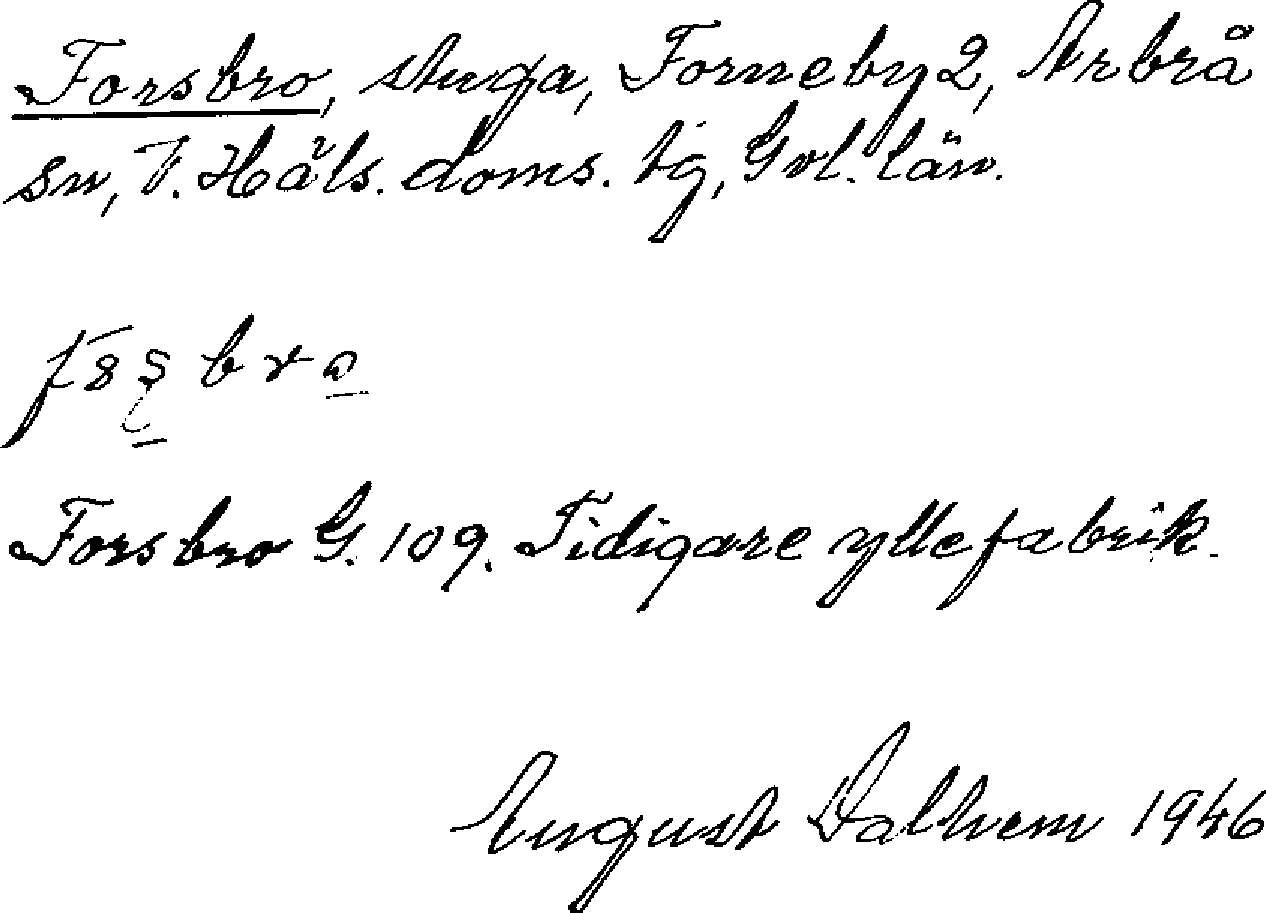 Forsbro, stuga, Forneby 2, Arbrå
sn, V. Häls. doms. tg, Gvl. län.
Forsbro G. 109. Tidigare yllefabrik.
August Dalhem 1946